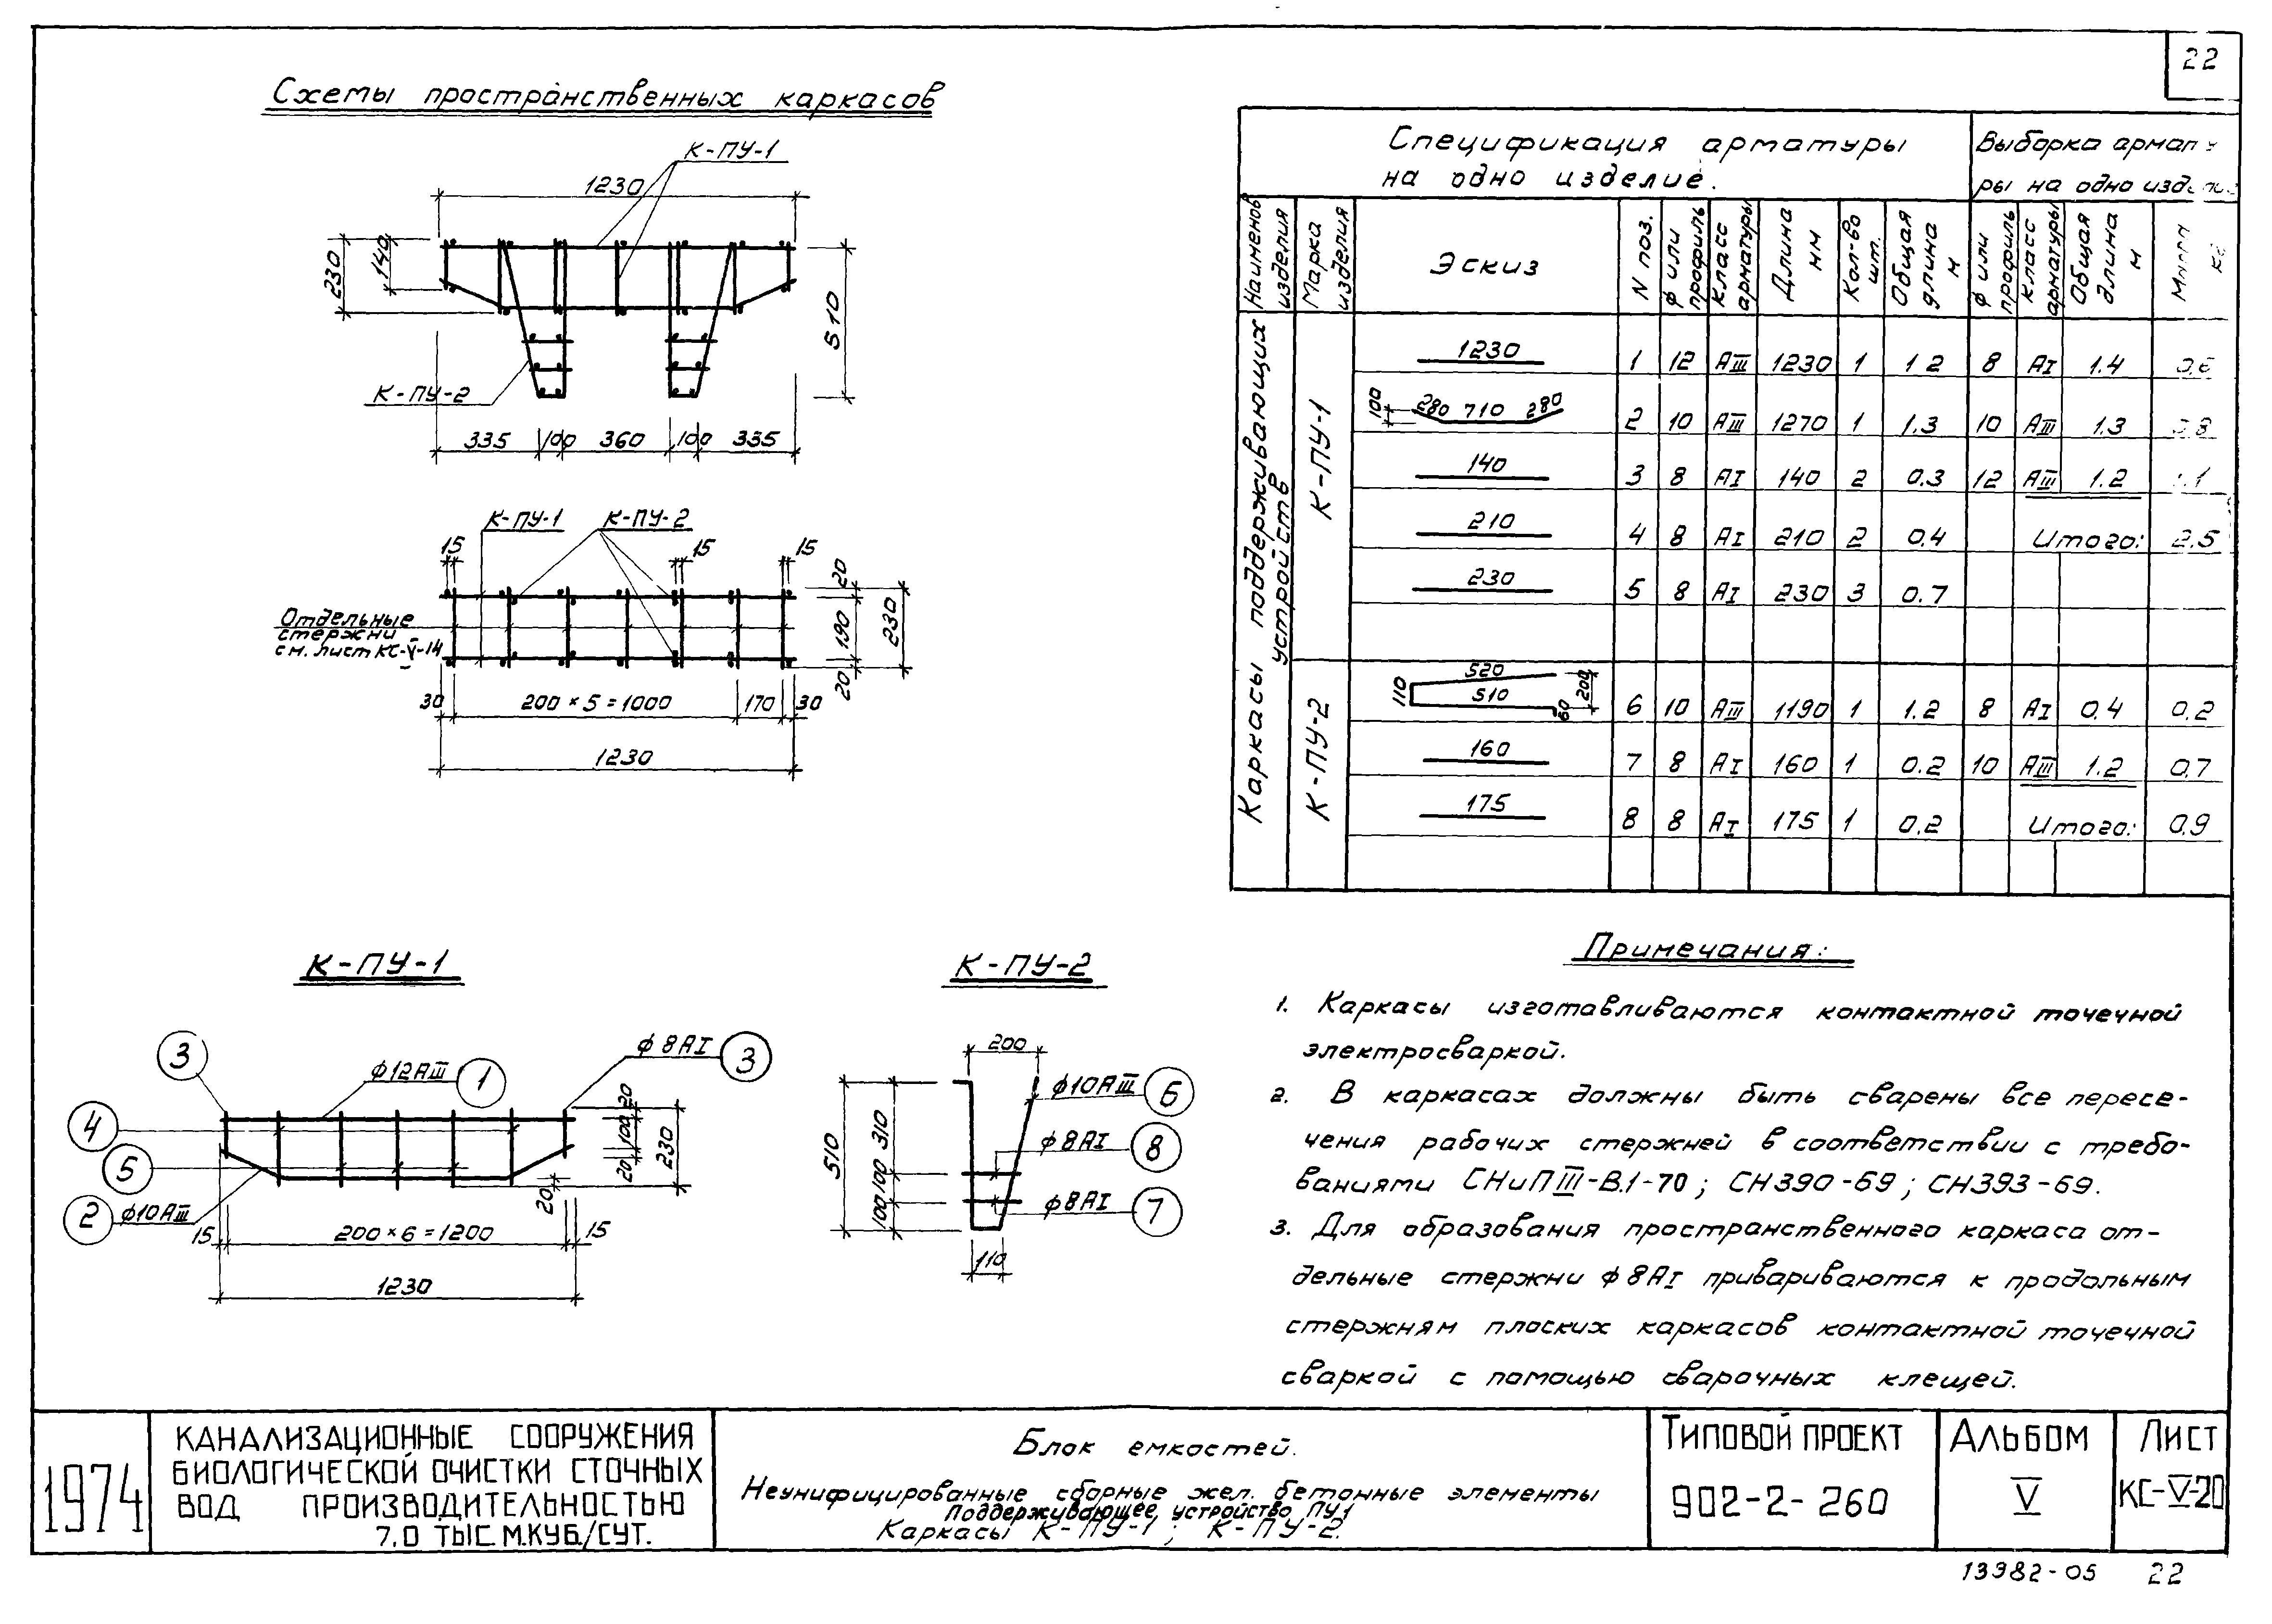 22
Схемы пространственных каркасов
К-ПУ-1
1230
230
140
510
К-ПУ-2
335 100 360 100 335
К-ПУ-1 К-ПУ-2
15 15 15
20
190
230
20
Отдельные
стержни
см. лист КС-V-14
30 200×5=1000 170 30
1230
Спецификация арматуры
на одно изделие.
Выборка
на одно
Наименов изделия
Марка изделия
Эскиз
N поз.
ф или профиль
Класс арматуры
Длина мм
Кол-во шт.
Общая длина м
ф или профиль
класс арматуры
Общая длина м
Каркасы поддерживающих устройств
К-ПУ-1
1230 1 12 АIII 1230 1 1.2 8 АI 1.4
100 280 710 280 2 10 АIII 1270 1 1.3 10 АIII 1.3
140 3 8 АI 140 2 0.3 12 АIII 1.2
210 4 8 АI 210 2 0.4 Итого: 2.5
230 5 8 АI 230 3 0.7
К-ПУ-2
110 520 510 200 60 6 10 АIII 1190 1 1.2 8 АI 0.4 0.2
160 7 8 АI 160 1 0.2 10 АIII 1.2 0.7
175 8 8 АI 175 1 0.2 Итого: 0.9
К-ПУ-1
3 ф12АIII 1 ф8АI 3
4
5
2 ф10АIII
20
100
20
230
20
15 200×6=1200 15
1230
К-ПУ-2
200
ф10АIII 6
ф8АI 8
ф8АI 7
510
310
100
100
110
Примечания:
1. Каркасы изготавливаются контактной точечной
электросваркой.
2. В каркасах должны быть сварены все пересе-
чения рабочих стержней в соответствии с требо-
ваниями СНиП III-В.1-70; СН390-69; СН393-69.
3. Для образования пространственного каркаса от-
дельные стержни ф8АI привариваются к продольным
стержням плоских каркасов контактной точечной
сваркой с помощью сварочных клещей.
1974
КАНАЛИЗАЦИОННЫЕ СООРУЖЕНИЯ
БИОЛОГИЧЕСКОЙ ОЧИСТКИ СТОЧНЫХ
ВОД ПРОИЗВОДИТЕЛЬНОСТЬЮ
7,0 ТЫС.М.КУБ./СУТ.
Блок емкостей.
Неунифицированные сборные жел. бетонные элементы
Поддерживающее устройство ПУ1
Каркасы К-ПУ-1; К-ПУ-2.
ТИПОВОЙ ПРОЕКТ
902-2-260
АЛЬБОМ
V
ЛИСТ
КС-V-20
13982-05 22